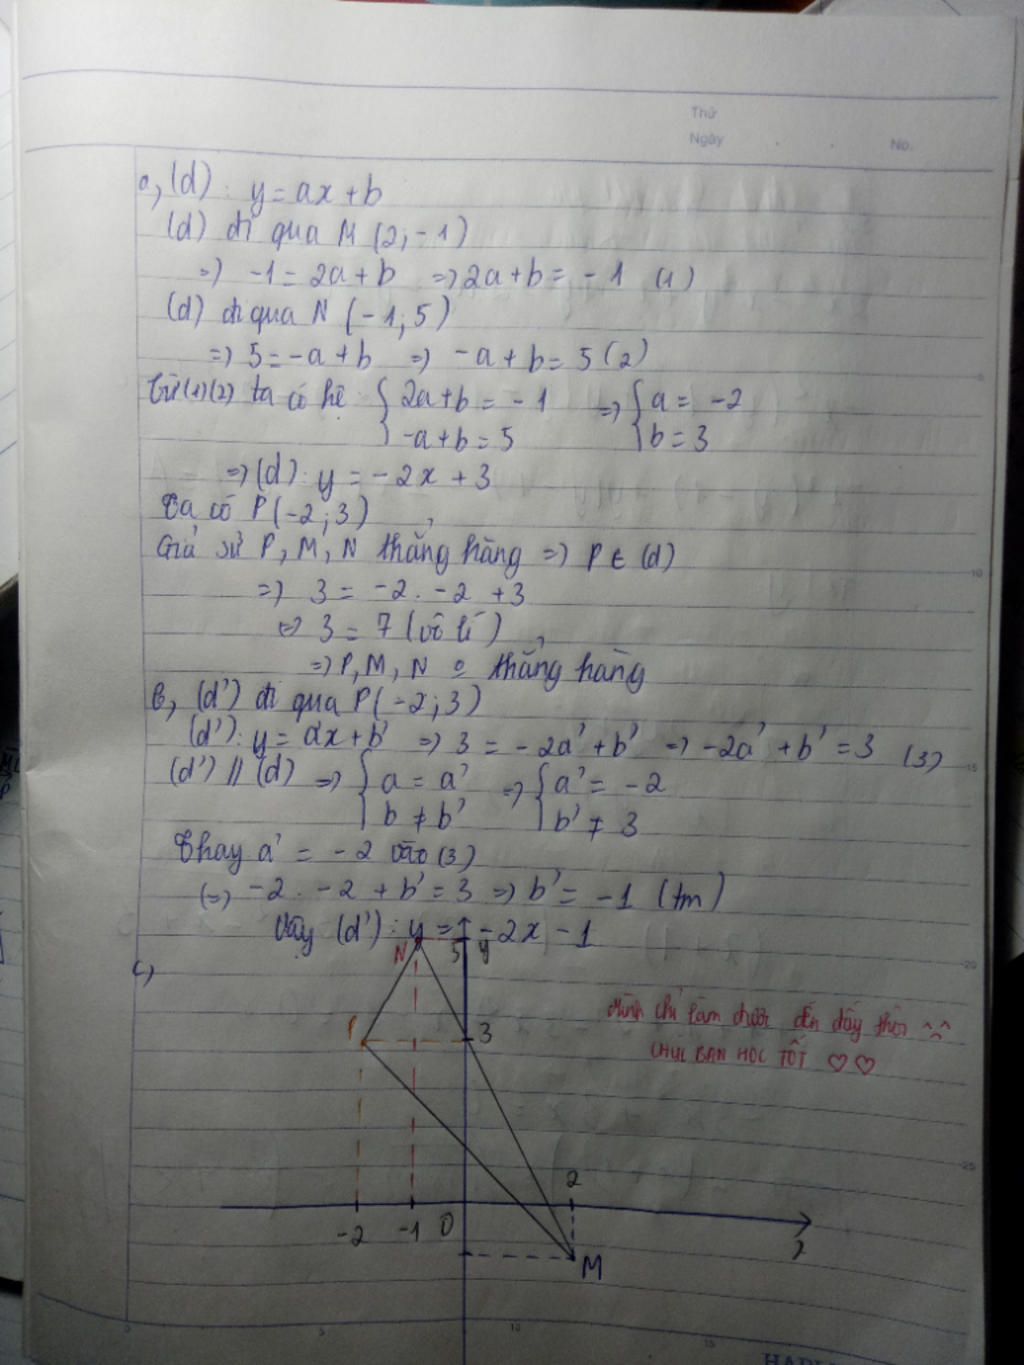 Thứ
Ngày
No.
a, (d): y = ax + b
(d) đi qua M (2; -1)
=) -1 = 2a + b =) 2a + b = -1 (1)
(d) đi qua N (-1; 5)
=) 5 = -a + b =) -a + b = 5 (2)
Từ (1)(2) ta có hệ { 2a+b = -1 =) { a = -2
-a+b = 5 b = 3
=) (d): y = -2x + 3
Ta có P(-2; 3)
Giả sử P, M, N thẳng hàng =) P ∈ (d)
=) 3 = -2 . -2 + 3
(=) 3 = 7 (vô lí)
=) P, M, N o thẳng hàng
b, (d') đi qua P(-2; 3)
(d'): y = a'x + b' =) 3 = -2a' + b' =) -2a' + b' = 3 (3)
(d') // (d) =) { a = a' =) { a' = -2
b ≠ b' b' ≠ 3
Thay a' = -2 vào (3)
(=) -2 . -2 + b' = 3 =) b' = -1 (tm)
Vậy (d'): y = -2x - 1
c)
N 5 y
Mình chỉ làm được đến đấy thôi
P 3
CHÚC BẠN HỌC TỐT ♡♡
2
-2 -1 O
M
5 10 15
10
15
20
25